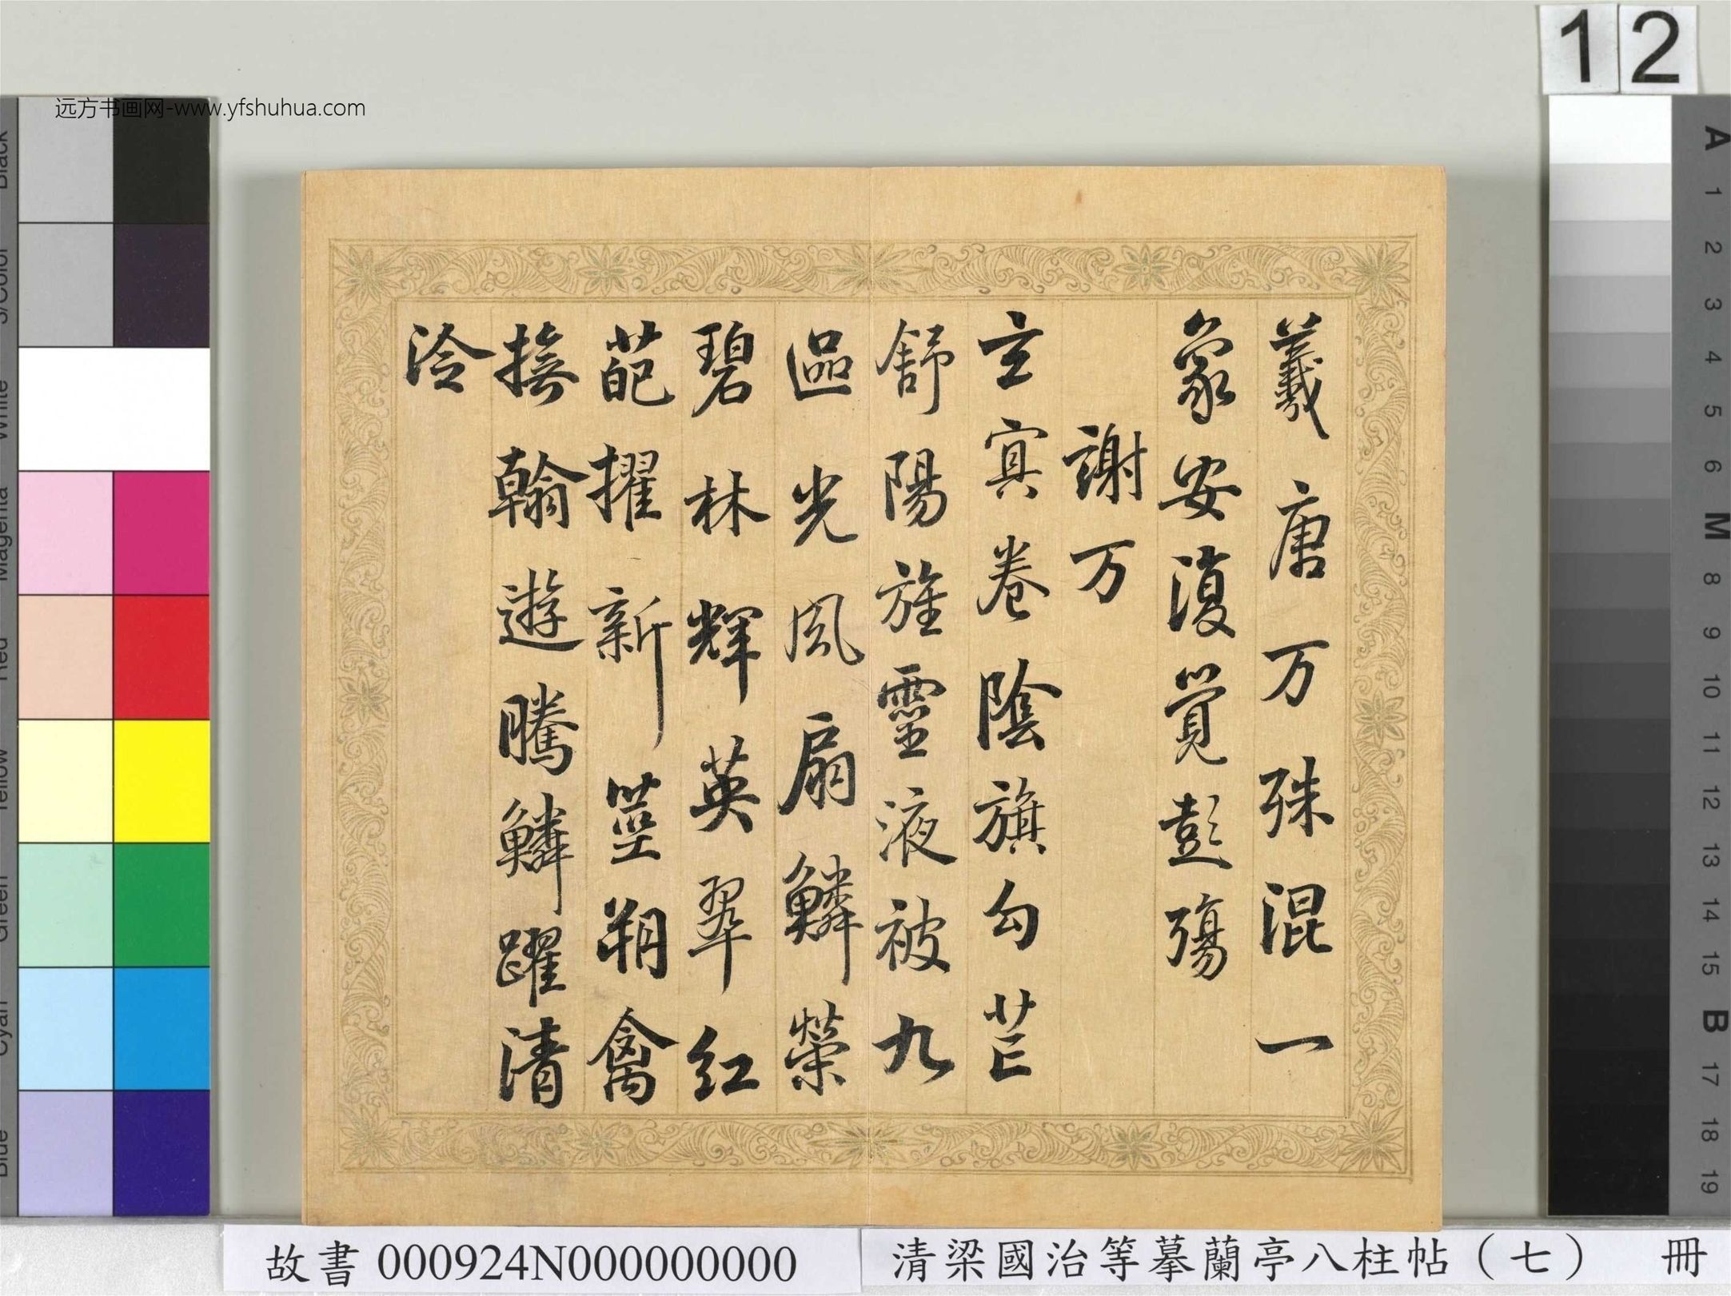 羲唐万殊混一
象安復覺彭殤
謝万
玄冥卷陰旗勾芒
舒陽旌靈液被九
區光風扇鱗榮
碧林輝英翠紅
葩擢新莖翔禽
撫翰遊騰鱗躍清
泠
远方书画网-www.yfshuhua.com
12
Black
3/Color
White
Magenta
Red
Yellow
Green
Cyan
Blue
A
1
2
3
4
5
6
M
8
9
10
11
12
13
14
15
B
17
18
19
故書 000924N000000000
清梁國治等摹蘭亭八柱帖（七） 冊